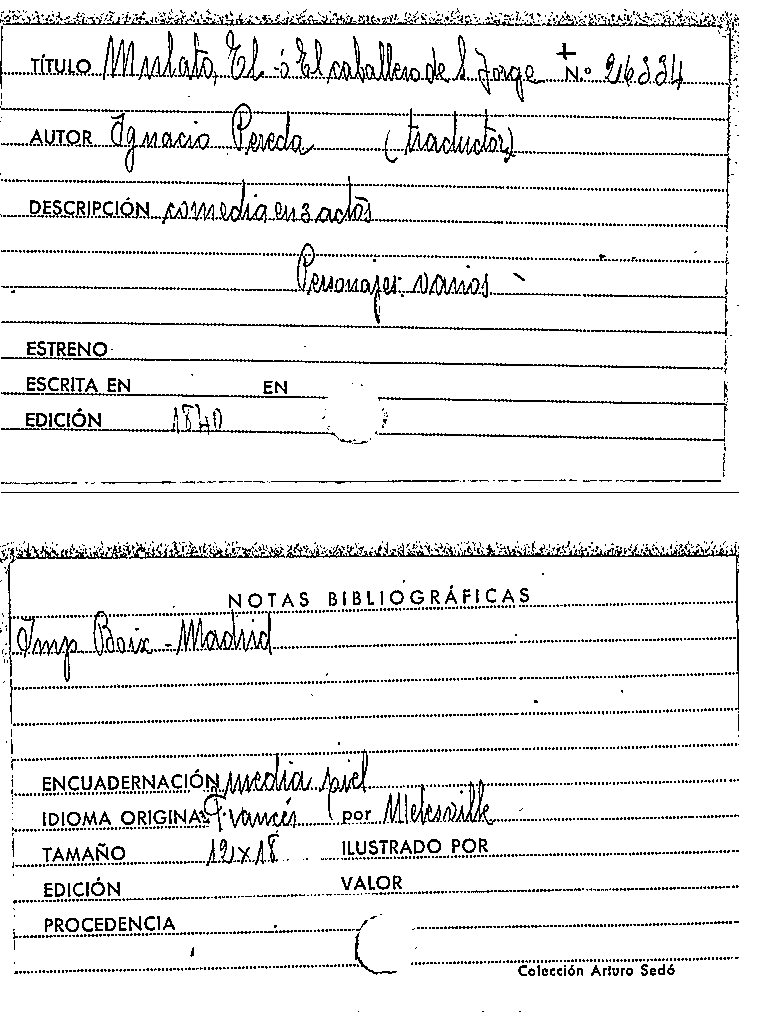 TÍTULO Mulato, El - ó El caballero de S. Jorge N.º 26334
AUTOR Ignacio Pereda (traductor)
DESCRIPCIÓN comedia en 3 actos
Personajes: varios
ESTRENO
ESCRITA EN EN
EDICIÓN 1840
NOTAS BIBLIOGRÁFICAS
Imp Boix - Madrid
ENCUADERNACIÓN media piel
IDIOMA ORIGINAL Francés (por Melesville
TAMAÑO 12 x 18 ILUSTRADO POR
EDICIÓN VALOR
PROCEDENCIA
Colección Arturo Sedó